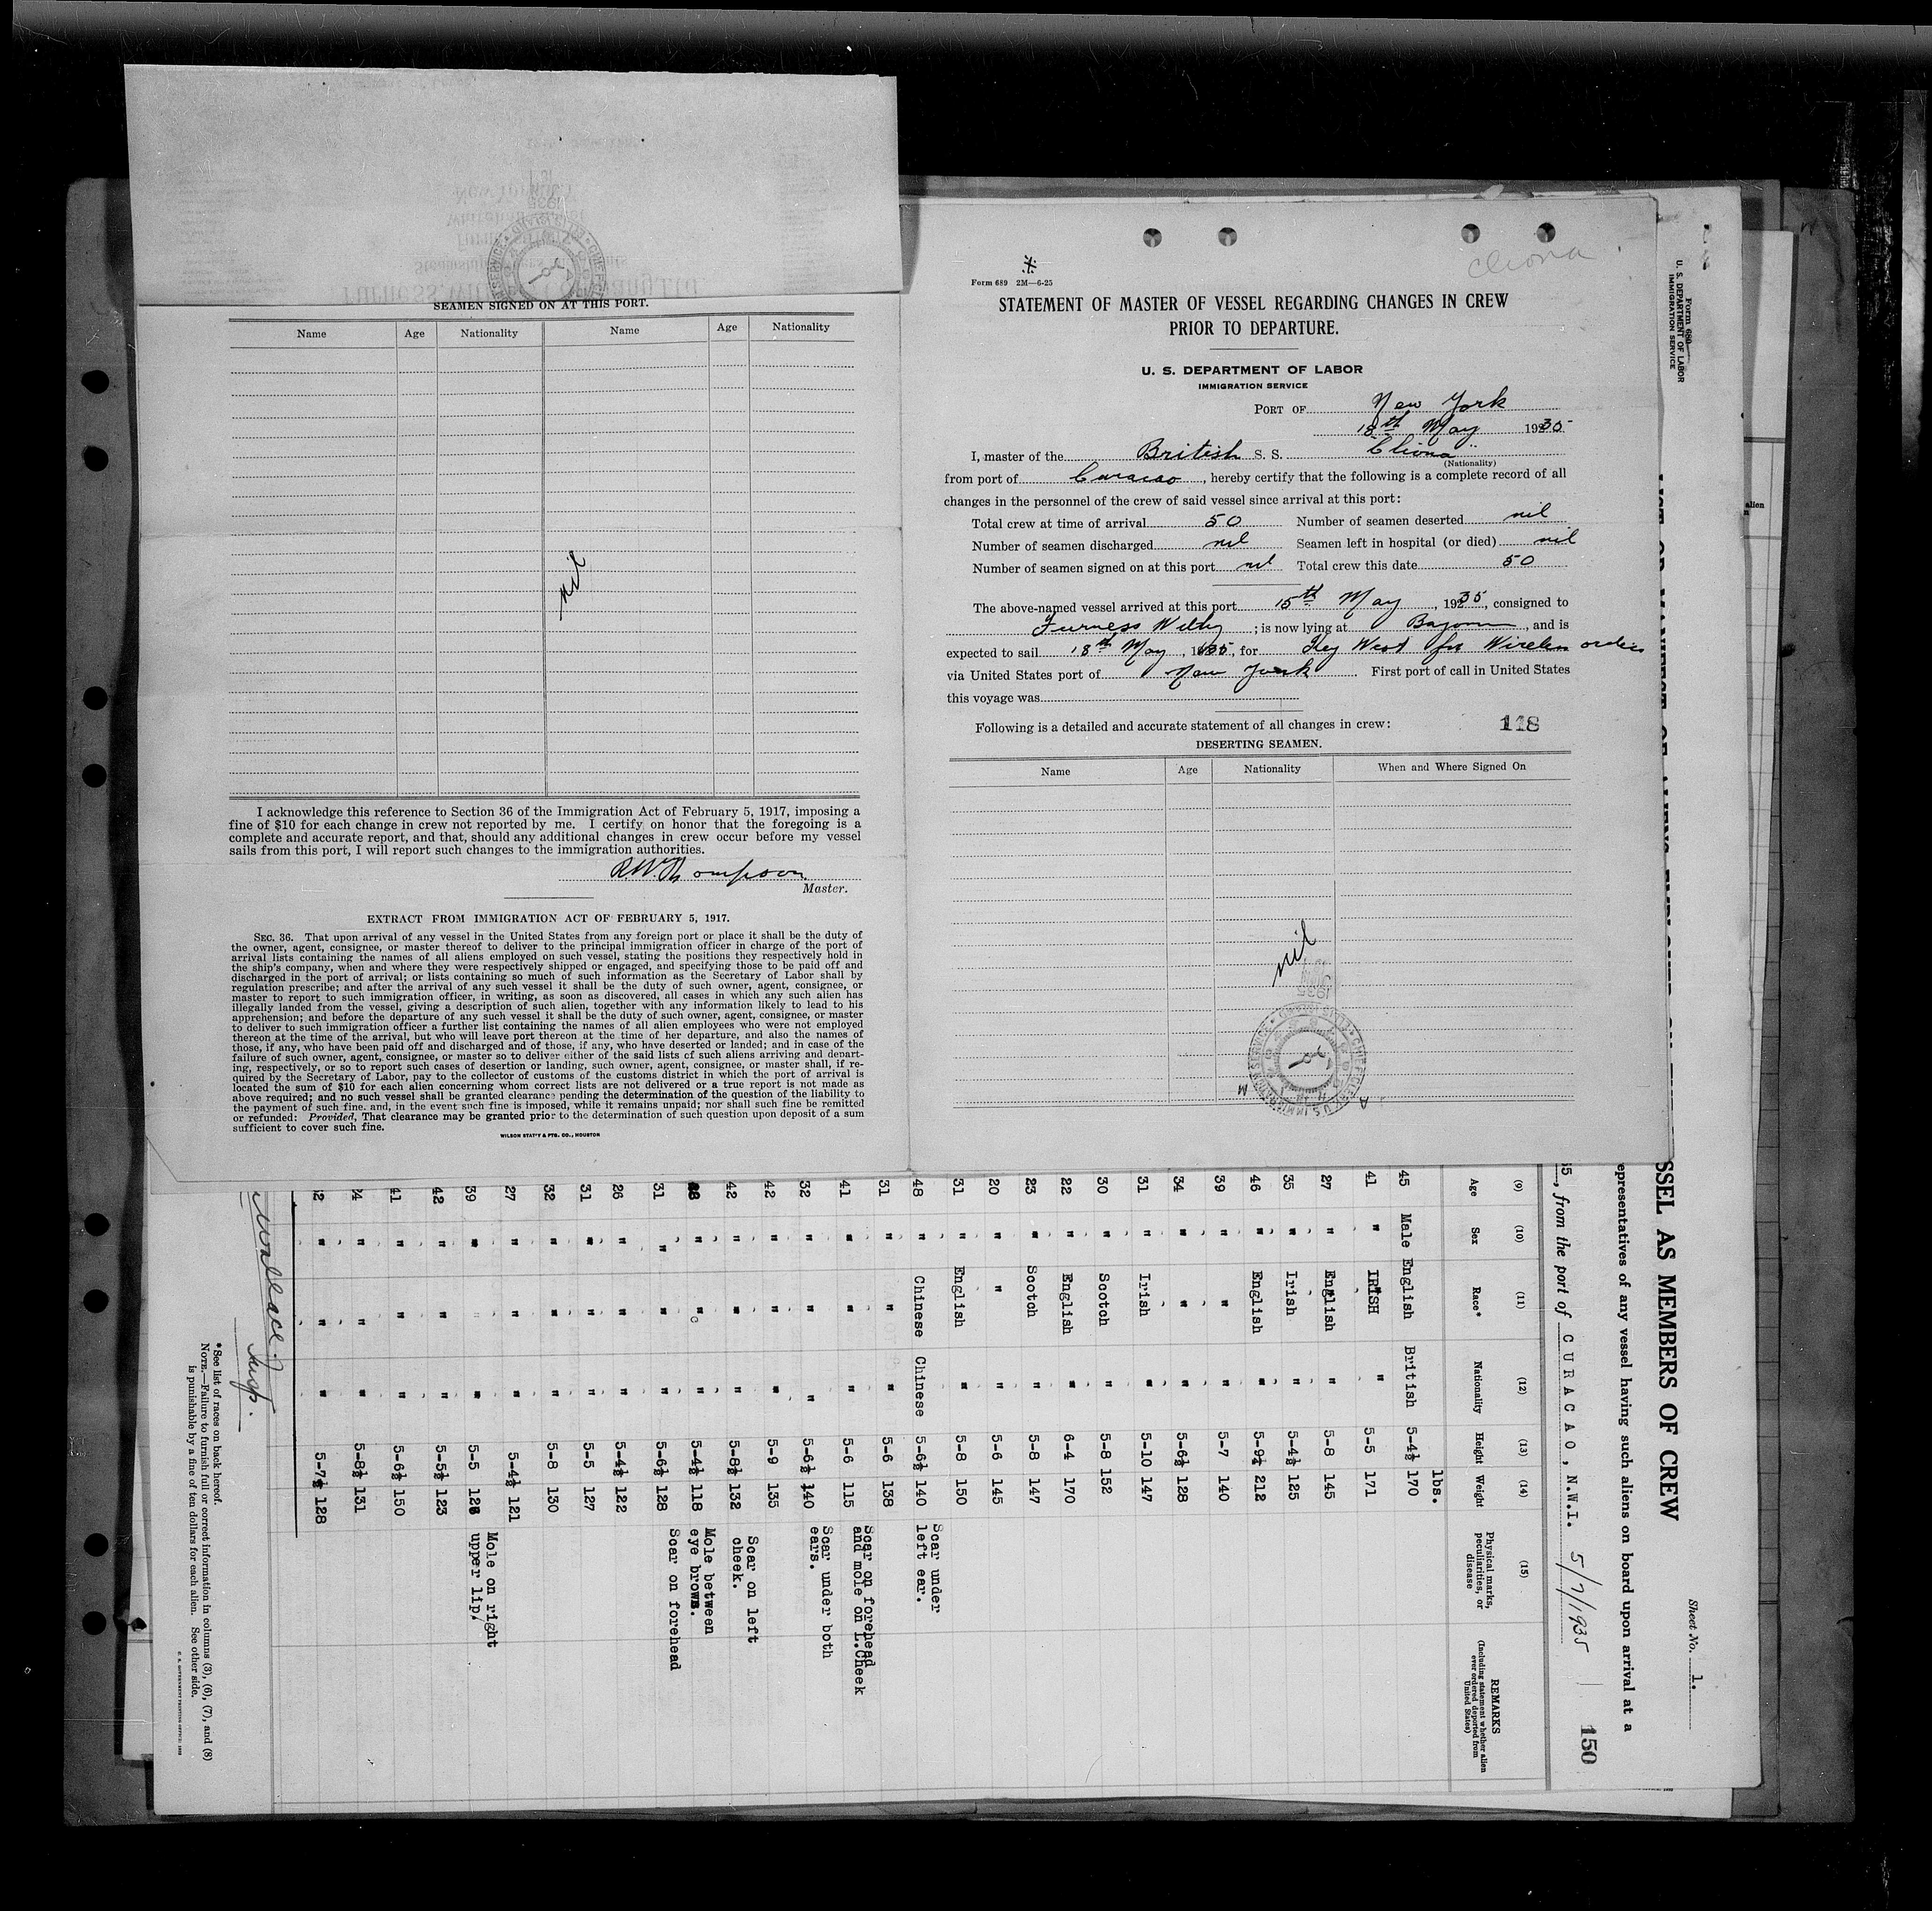 SEAMEN SIGNED ON AT THIS PORT.
Name Age Nationality Name Age Nationality
nil
I acknowledge this reference to Section 36 of the Immigration Act of February 5, 1917, imposing a
fine of $10 for each change in crew not reported by me. I certify on honor that the foregoing is a
complete and accurate report, and that, should any additional changes in crew occur before my vessel
sails from this port, I will report such changes to the immigration authorities.
R.W. Thompson
Master.
EXTRACT FROM IMMIGRATION ACT OF FEBRUARY 5, 1917.
SEC. 36. That upon arrival of any vessel in the United States from any foreign port or place it shall be the duty of
the owner, agent, consignee, or master thereof to deliver to the principal immigration officer in charge of the port of
arrival lists containing the names of all aliens employed on such vessel, stating the positions they respectively hold in
the ship's company, when and where they were respectively shipped or engaged, and specifying those to be paid off and
discharged in the port of arrival; or lists containing so much of such information as the Secretary of Labor shall by
regulation prescribe; and after the arrival of any such vessel it shall be the duty of such owner, agent, consignee, or
master to report to such immigration officer, in writing, as soon as discovered, all cases in which any such alien has
illegally landed from the vessel, giving a description of such alien, together with any information likely to lead to his
apprehension; and before the departure of any such vessel it shall be the duty of such owner, agent, consignee, or master
to deliver to such immigration officer a further list containing the names of all alien employees who were not employed
thereon at the time of the arrival, but who will leave port thereon at the time of her departure, and also the names of
those, if any, who have been paid off and discharged and of those, if any, who have deserted or landed; and in case of the
failure of such owner, agent, consignee, or master so to deliver either of the said lists of such aliens arriving and depart-
ing, respectively, or so to report such cases of desertion or landing, such owner, agent, consignee, or master shall, if re-
quired by the Secretary of Labor, pay to the collector of customs of the customs district in which the port of arrival is
located the sum of $10 for each alien concerning whom correct lists are not delivered or a true report is not made as
above required; and no such vessel shall be granted clearance pending the determination of the question of the liability to
the payment of such fine, and, in the event such fine is imposed, while it remains unpaid; nor shall such fine be remitted
or refunded: Provided, That clearance may be granted prior to the determination of such question upon deposit of a sum
sufficient to cover such fine.
WILSON STAT'Y & PTG. CO., HOUSTON
Cliona
Form 689 2M—6-25
STATEMENT OF MASTER OF VESSEL REGARDING CHANGES IN CREW
PRIOR TO DEPARTURE.
U. S. DEPARTMENT OF LABOR
IMMIGRATION SERVICE
PORT OF New York
18th May 1935
I, master of the British S. S. Cliona
(Nationality)
from port of Curacao, hereby certify that the following is a complete record of all
changes in the personnel of the crew of said vessel since arrival at this port:
Total crew at time of arrival 50 Number of seamen deserted nil
Number of seamen discharged nil Seamen left in hospital (or died) nil
Number of seamen signed on at this port nil Total crew this date 50
The above-named vessel arrived at this port 15th May, 1935, consigned to
Furness Withy; is now lying at Bayonne, and is
expected to sail 18th May, 1935, for Key West for Wireless orders
via United States port of New York First port of call in United States
this voyage was
Following is a detailed and accurate statement of all changes in crew: 118
DESERTING SEAMEN.
Name Age Nationality When and Where Signed On
nil
Form 680
U. S. DEPARTMENT OF LABOR
IMMIGRATION SERVICE
Sheet No. 1.
SSEL AS MEMBERS OF CREW
epresentatives of any vessel having such aliens on board upon arrival at a
35, from the port of CURACAO, N.W.I. 5/7/1935 150
(9) (10) (11) (12) (13) (14) (15)
Age Sex Race* Nationality Height Weight Physical marks, peculiarities, or disease REMARKS (Including statement whether alien ever ordered deported from United States)
lbs.
45 Male English British 5-4½ 170
41 " IRISH " 5-5 171
27 " English " 5-8 145
35 " Irish " 5-4½ 125
46 " English " 5-9¼ 212
39 " " " 5-7 140
34 " " " 5-6½ 128
31 " Irish " 5-10 147
30 " Scotch " 5-8 152
22 " English " 6-4 170
23 " Scotch " 5-8 147
20 " " " 5-6 145
31 " English " 5-8 150
48 " Chinese Chinese 5-6½ 140 Scar under left ear.
31 " " " 5-6 138
41 " " " 5-6 115 Scar on forehead and mole on L.Cheek
32 " " " 5-6½ 140 Scar under both ears.
42 " " " 5-9 135
42 " " " 5-8½ 132 Scar on left cheek.
" " " 5-4½ 118 Mole between eye brows.
31 " " " 5-6½ 128 Scar on forehead
26 " " " 5-4½ 122
31 " " " 5-5 127
32 " " " 5-8 130
27 " " " 5-4½ 121
39 " " " 5-5 Mole on right upper lip.
42 " " " 5-5½ 123
41 " " " 5-6½ 150
24 " " " 5-8½ 131
32 " " " 5-7½ 128
Wallace
Insp.
*See list of races on back hereof.
NOTE.—Failure to furnish full or correct information in columns (3), (6), (7), and (8)
is punishable by a fine of ten dollars for each alien. See other side.